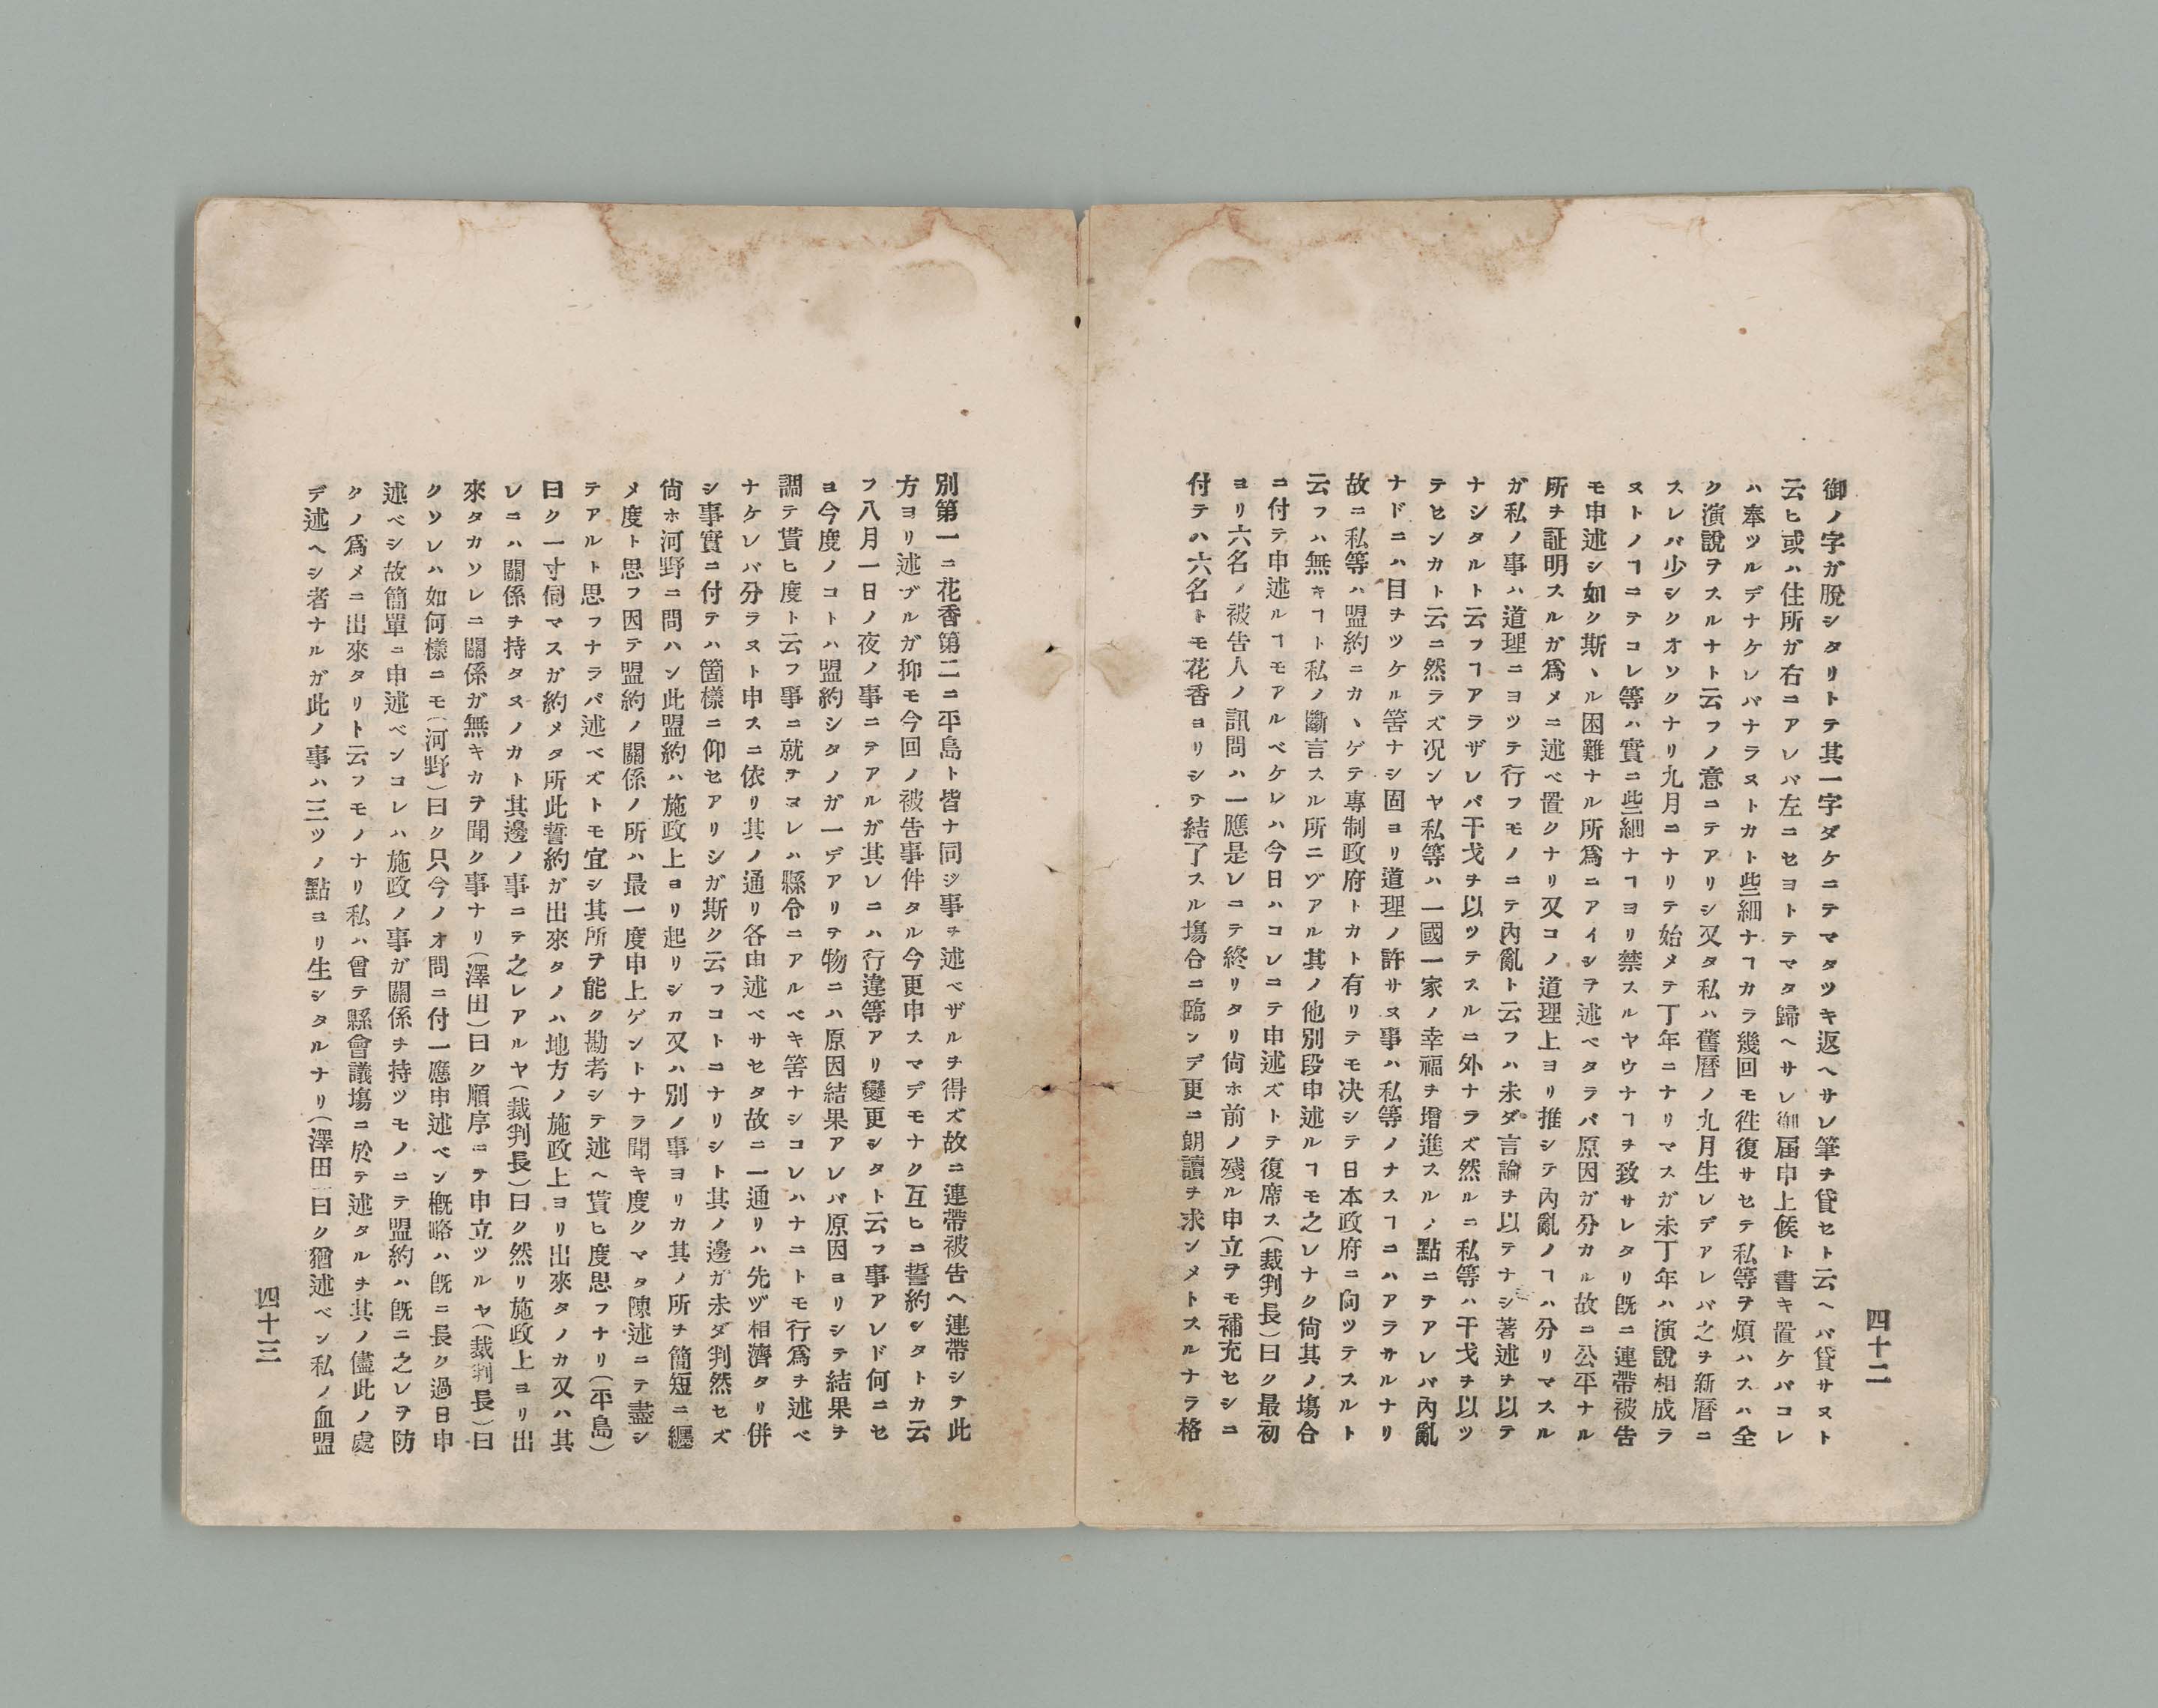 四十二
御ノ字ガ脫シタリトテ其一字ダケニテマタツキ返ヘサレ筆ヲ貸セト云ヘバ貸サヌト
云ヒ或ハ住所ガ右ニアレバ左ニセヨトテマタ歸ヘサレ御届申上候ト書キ置ケバコレ
ハ奉ツルデナケレバナラヌトカト些細ナヿカラ幾回モ徃復サセテ私等ヲ煩ハスハ全
ク演說ヲスルナト云フノ意ニテアリシ又タ私ハ舊曆ノ九月生レデアレバ之ヲ新曆ニ
スレバ少シクオソクナリ九月ニナリテ始メテ丁年ニナリマスガ未丁年ハ演說相成ラ
ヌトノヿニテコレ等ハ實ニ些細ナヿヨリ禁スルヤウナヿヲ致サレタリ旣ニ連帶被告
モ申述シ如ク斯ヽル困難ナル所爲ニアイシヲ述ベタラバ原因ガ分カル故ニ公平ナル
所ヲ証明スルガ爲メニ述ベ置クナリ又コノ道理上ヨリ推シテ內亂ノヿハ分リマスル
ガ私ノ事ハ道理ニヨツテ行フモノニテ內亂ト云フハ未ダ言論ヲ以テナシ著述ヲ以テ
ナシタルト云フヿアラザレバ干戈ヲ以ツテスルニ外ナラズ然ルニ私等ハ干戈ヲ以ツ
テセンカト云ニ然ラズ况ンヤ私等ハ一國一家ノ幸福ヲ增進スルノ點ニテアレバ內亂
ナドニハ目ヲツケル筈ナシ固ヨリ道理ノ許サヌ事ハ私等ノナスヿニハアラサルナリ
故ニ私等ハ盟約ニカヽゲテ專制政府トカト有リテモ决シテ日本政府ニ向ツテスルト
云フハ無キヿト私ノ斷言スル所ニヅアル其ノ他別段申述ルヿモ之レナク尙其ノ塲合
ニ付テ申述ルヿモアルベケレハ今日ハコレニテ申述ズトテ復席ス(裁判長)曰ク最初
ヨリ六名ノ被告人ノ訊問ハ一應是レニテ終リタリ尙ホ前ノ殘ル申立ヲモ補充セシニ
付テハ六名トモ花香ヨリシテ結了スル塲合ニ臨ンデ更ニ朗讀ヲ求ンメトスルナラ格
別第一ニ花香第二ニ平島ト皆ナ同シ事ヲ述ベザルヲ得ズ故ニ連帶被告ヘ連帶シテ此
方ヨリ述ブルガ抑モ今回ノ被告事件タル今更申スマデモナク互ヒニ誓約シタトカ云
フ八月一日ノ夜ノ事ニテアルガ其レニハ行違等アリ變更シタト云フ事アレド何ニセ
ヨ今度ノコトハ盟約シタノガ一デアリテ物ニハ原因結果アレバ原因ヨリシテ結果ヲ
調テ貰ヒ度ト云フ事ニ就テヨレハ縣令ニアルベキ筈ナシコレハナニトモ行爲ヲ述ベ
ナケレバ分ラヌト申スニ依リ其ノ通リ各由述ベサセタ故ニ一通リハ先ヅ相濟タリ併
シ事實ニ付テハ箇樣ニ仰セアリシガ斯ク云フコトニナリシト其ノ邊ガ未ダ判然セズ
尙ホ河野ニ問ハン此盟約ハ施政上ヨリ起リシカ又ハ別ノ事ヨリカ其ノ所ヲ簡短ニ纒
メ度ト思フ因テ盟約ノ關係ノ所ハ最一度申上ゲントナラ聞キ度クマタ陳述ニテ盡シ
テアルト思フナラバ述ベズトモ宜シ其所ヲ能ク勘考シテ述ヘ貰ヒ度思フナリ(平島)
曰ク一寸伺マスガ約メタ所此誓約ガ出來タノハ地方ノ施政上ヨリ出來タノカ又ハ其
レニハ關係ヲ持タヌノカト其邊ノ事ニテ之レアルヤ(裁判長)曰ク然リ施政上ヨリ出
來タカソレニ關係ガ無キカヲ聞ク事ナリ(澤田)曰ク順序ニテ申立ツルヤ(裁判長)曰
クソレハ如何樣ニモ(河野)曰ク只今ノオ問ニ付一應申述ベン槪略ハ旣ニ長ク過日申
述ベシ故簡單ニ申述ベンコレハ施政ノ事ガ關係ヲ持ツモノニテ盟約ハ旣ニ之レヲ防
クノ爲メニ出來タリト云フモノナリ私ハ曾テ縣會議塲ニ於テ述タルヲ其ノ儘此ノ處
デ述ヘシ者ナルガ此ノ事ハ三ツノ點ヨリ生シタルナリ(澤田)曰ク猶述ベン私ノ血盟
四十三